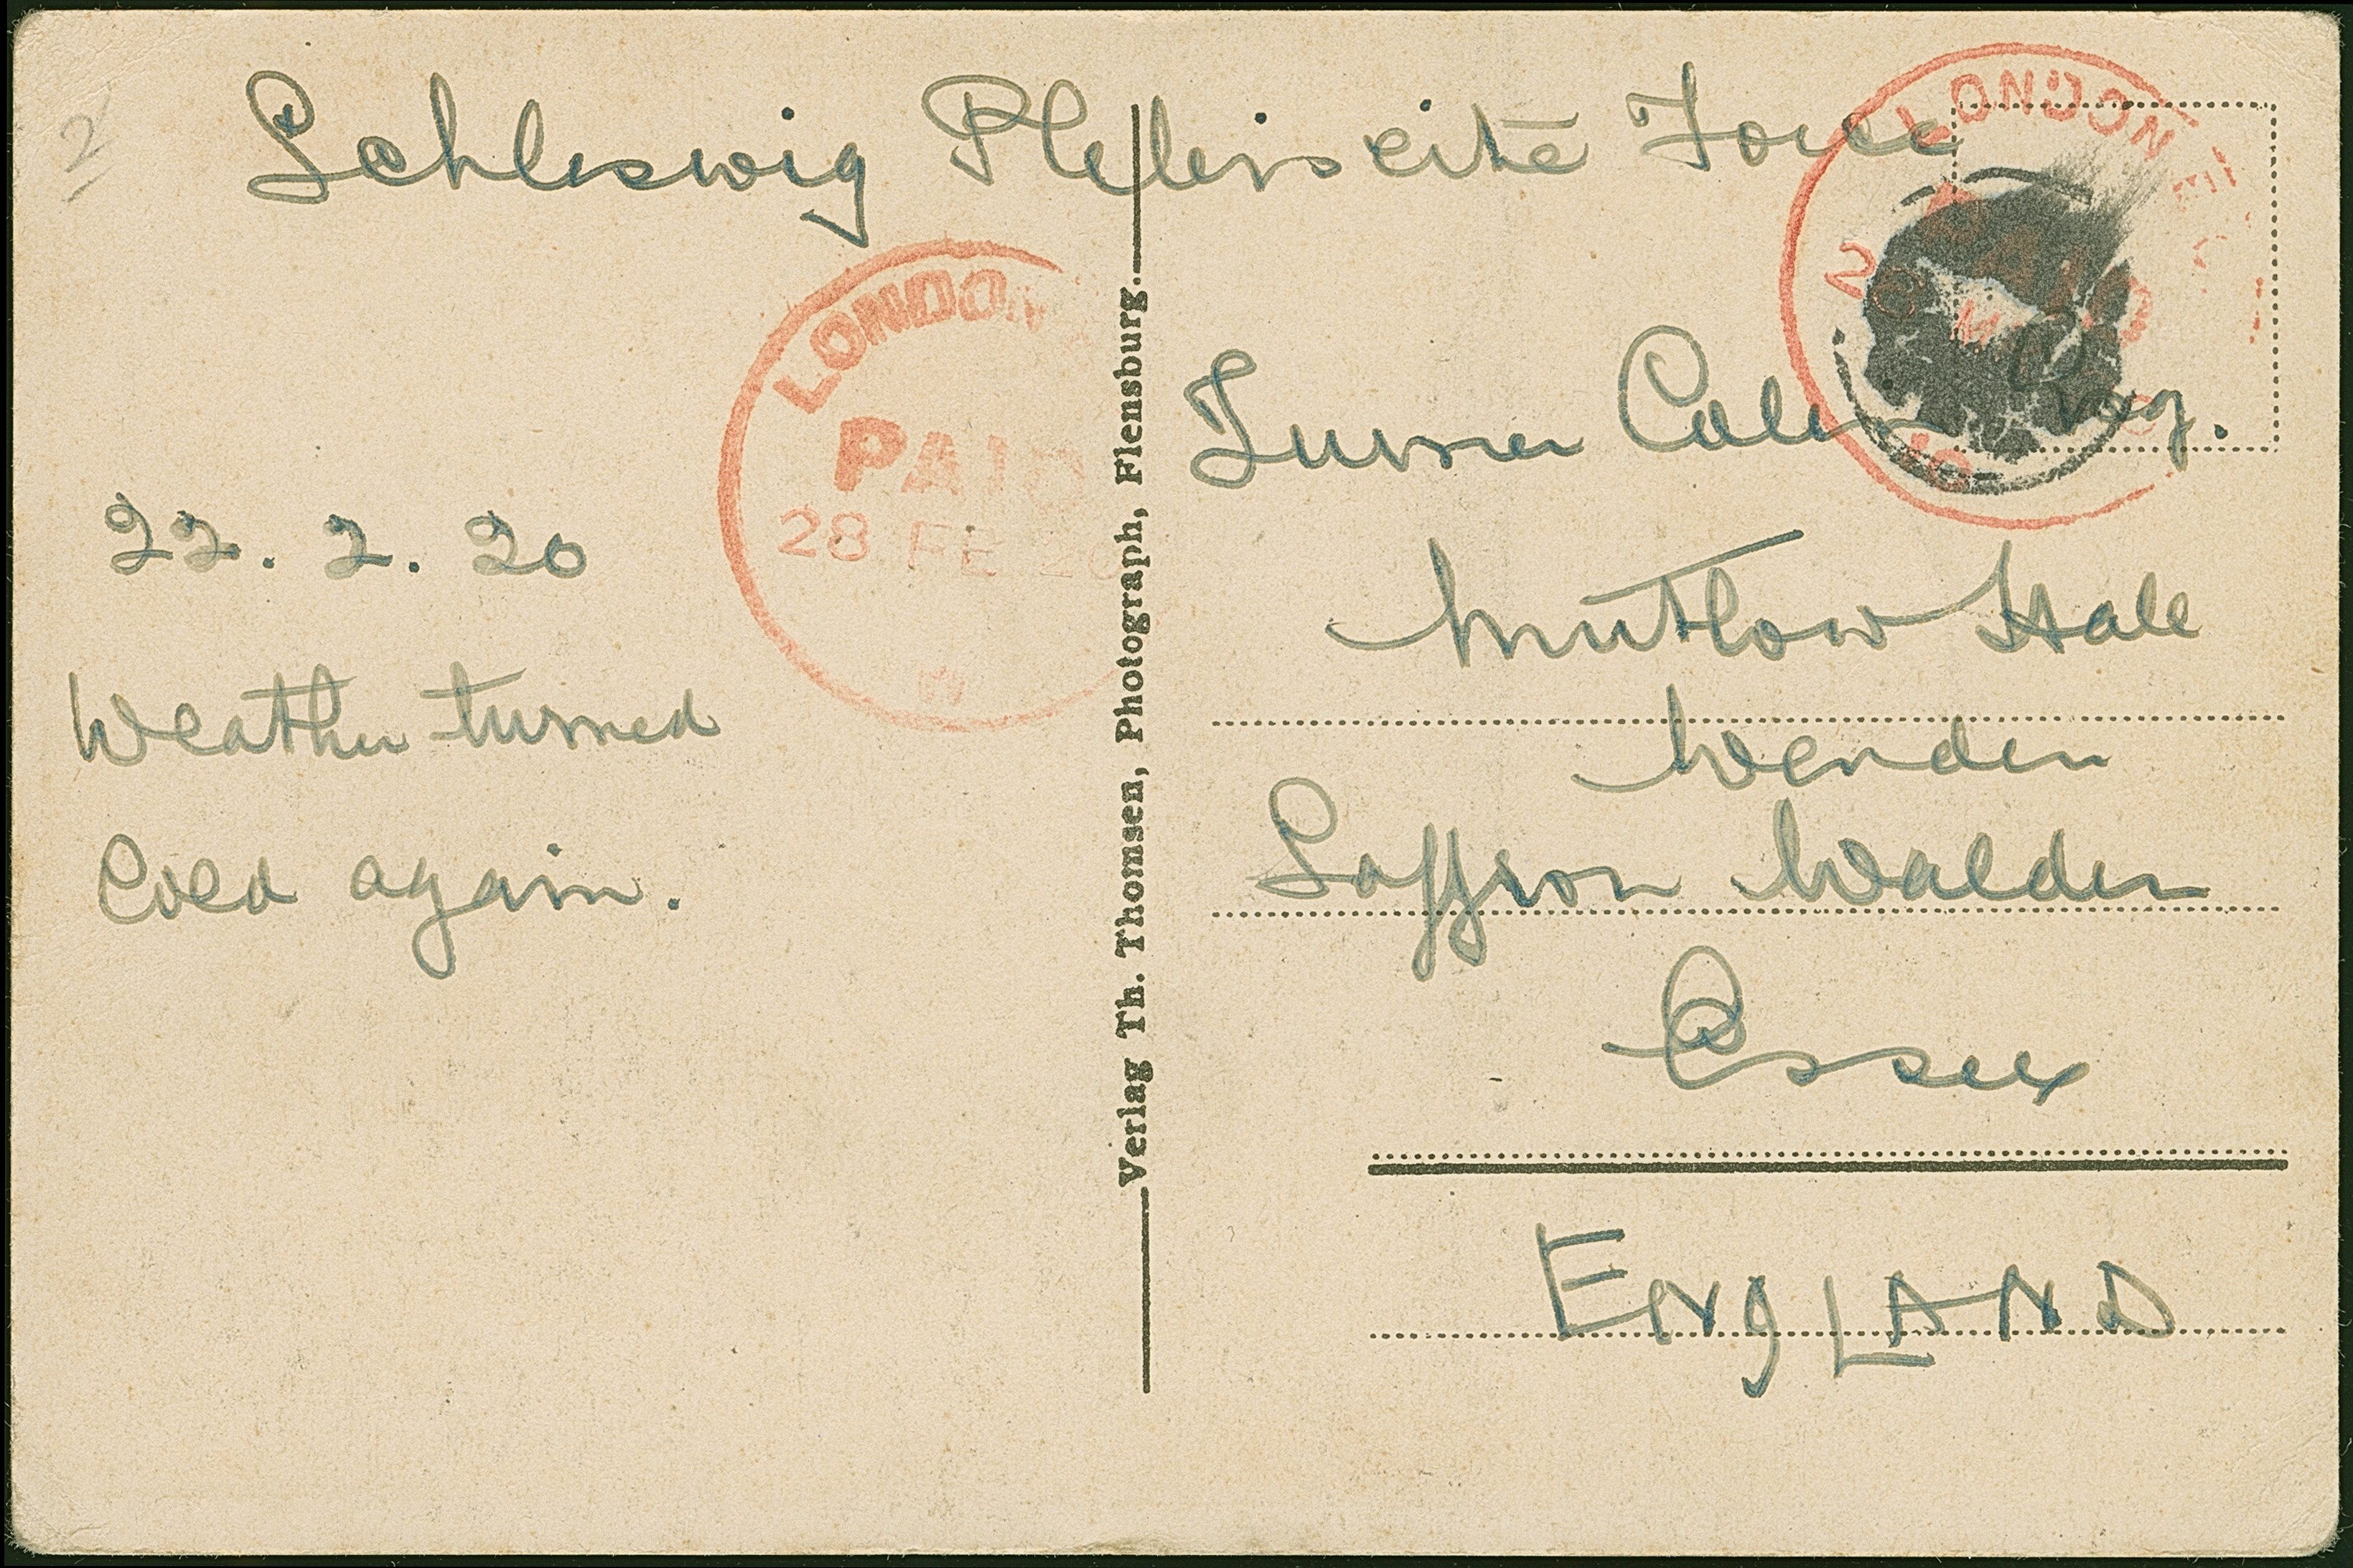 2
Schleswig Plebiscite Force
LONDON
PAID
28 FE 20
LONDON
PAID
28
22. 2. 20
Weather turned
Cold again.
Verlag Th. Thomsen, Photograph, Flensburg.
Turner
Mutlow Hall
Wenden
Saffron Walden
Essex
ENgLAND